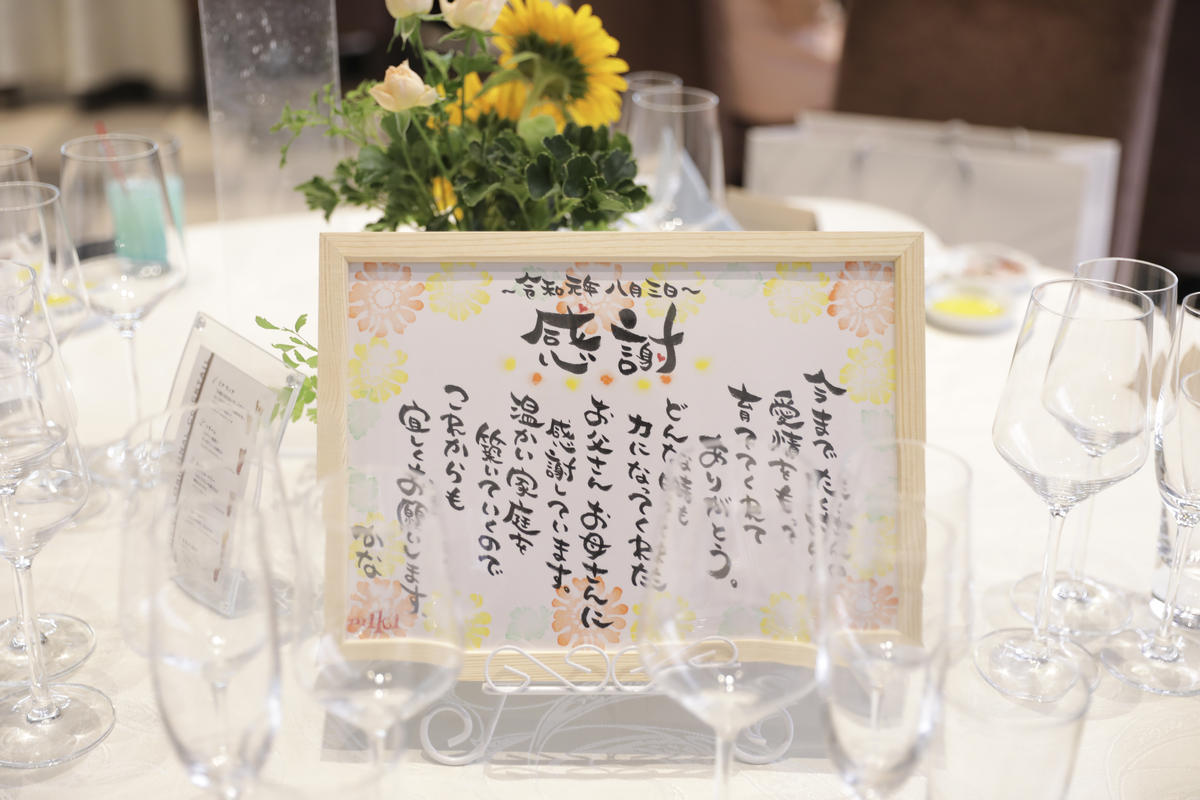 ～令和元年 八月三日～
感謝
今まで
愛情をもって
育ててくれて
ありがとう。
どんな
力になってくれた
お父さん お母さんに
感謝しています。
温かい家庭を
築いていくので
これからも
宜しくお願いします